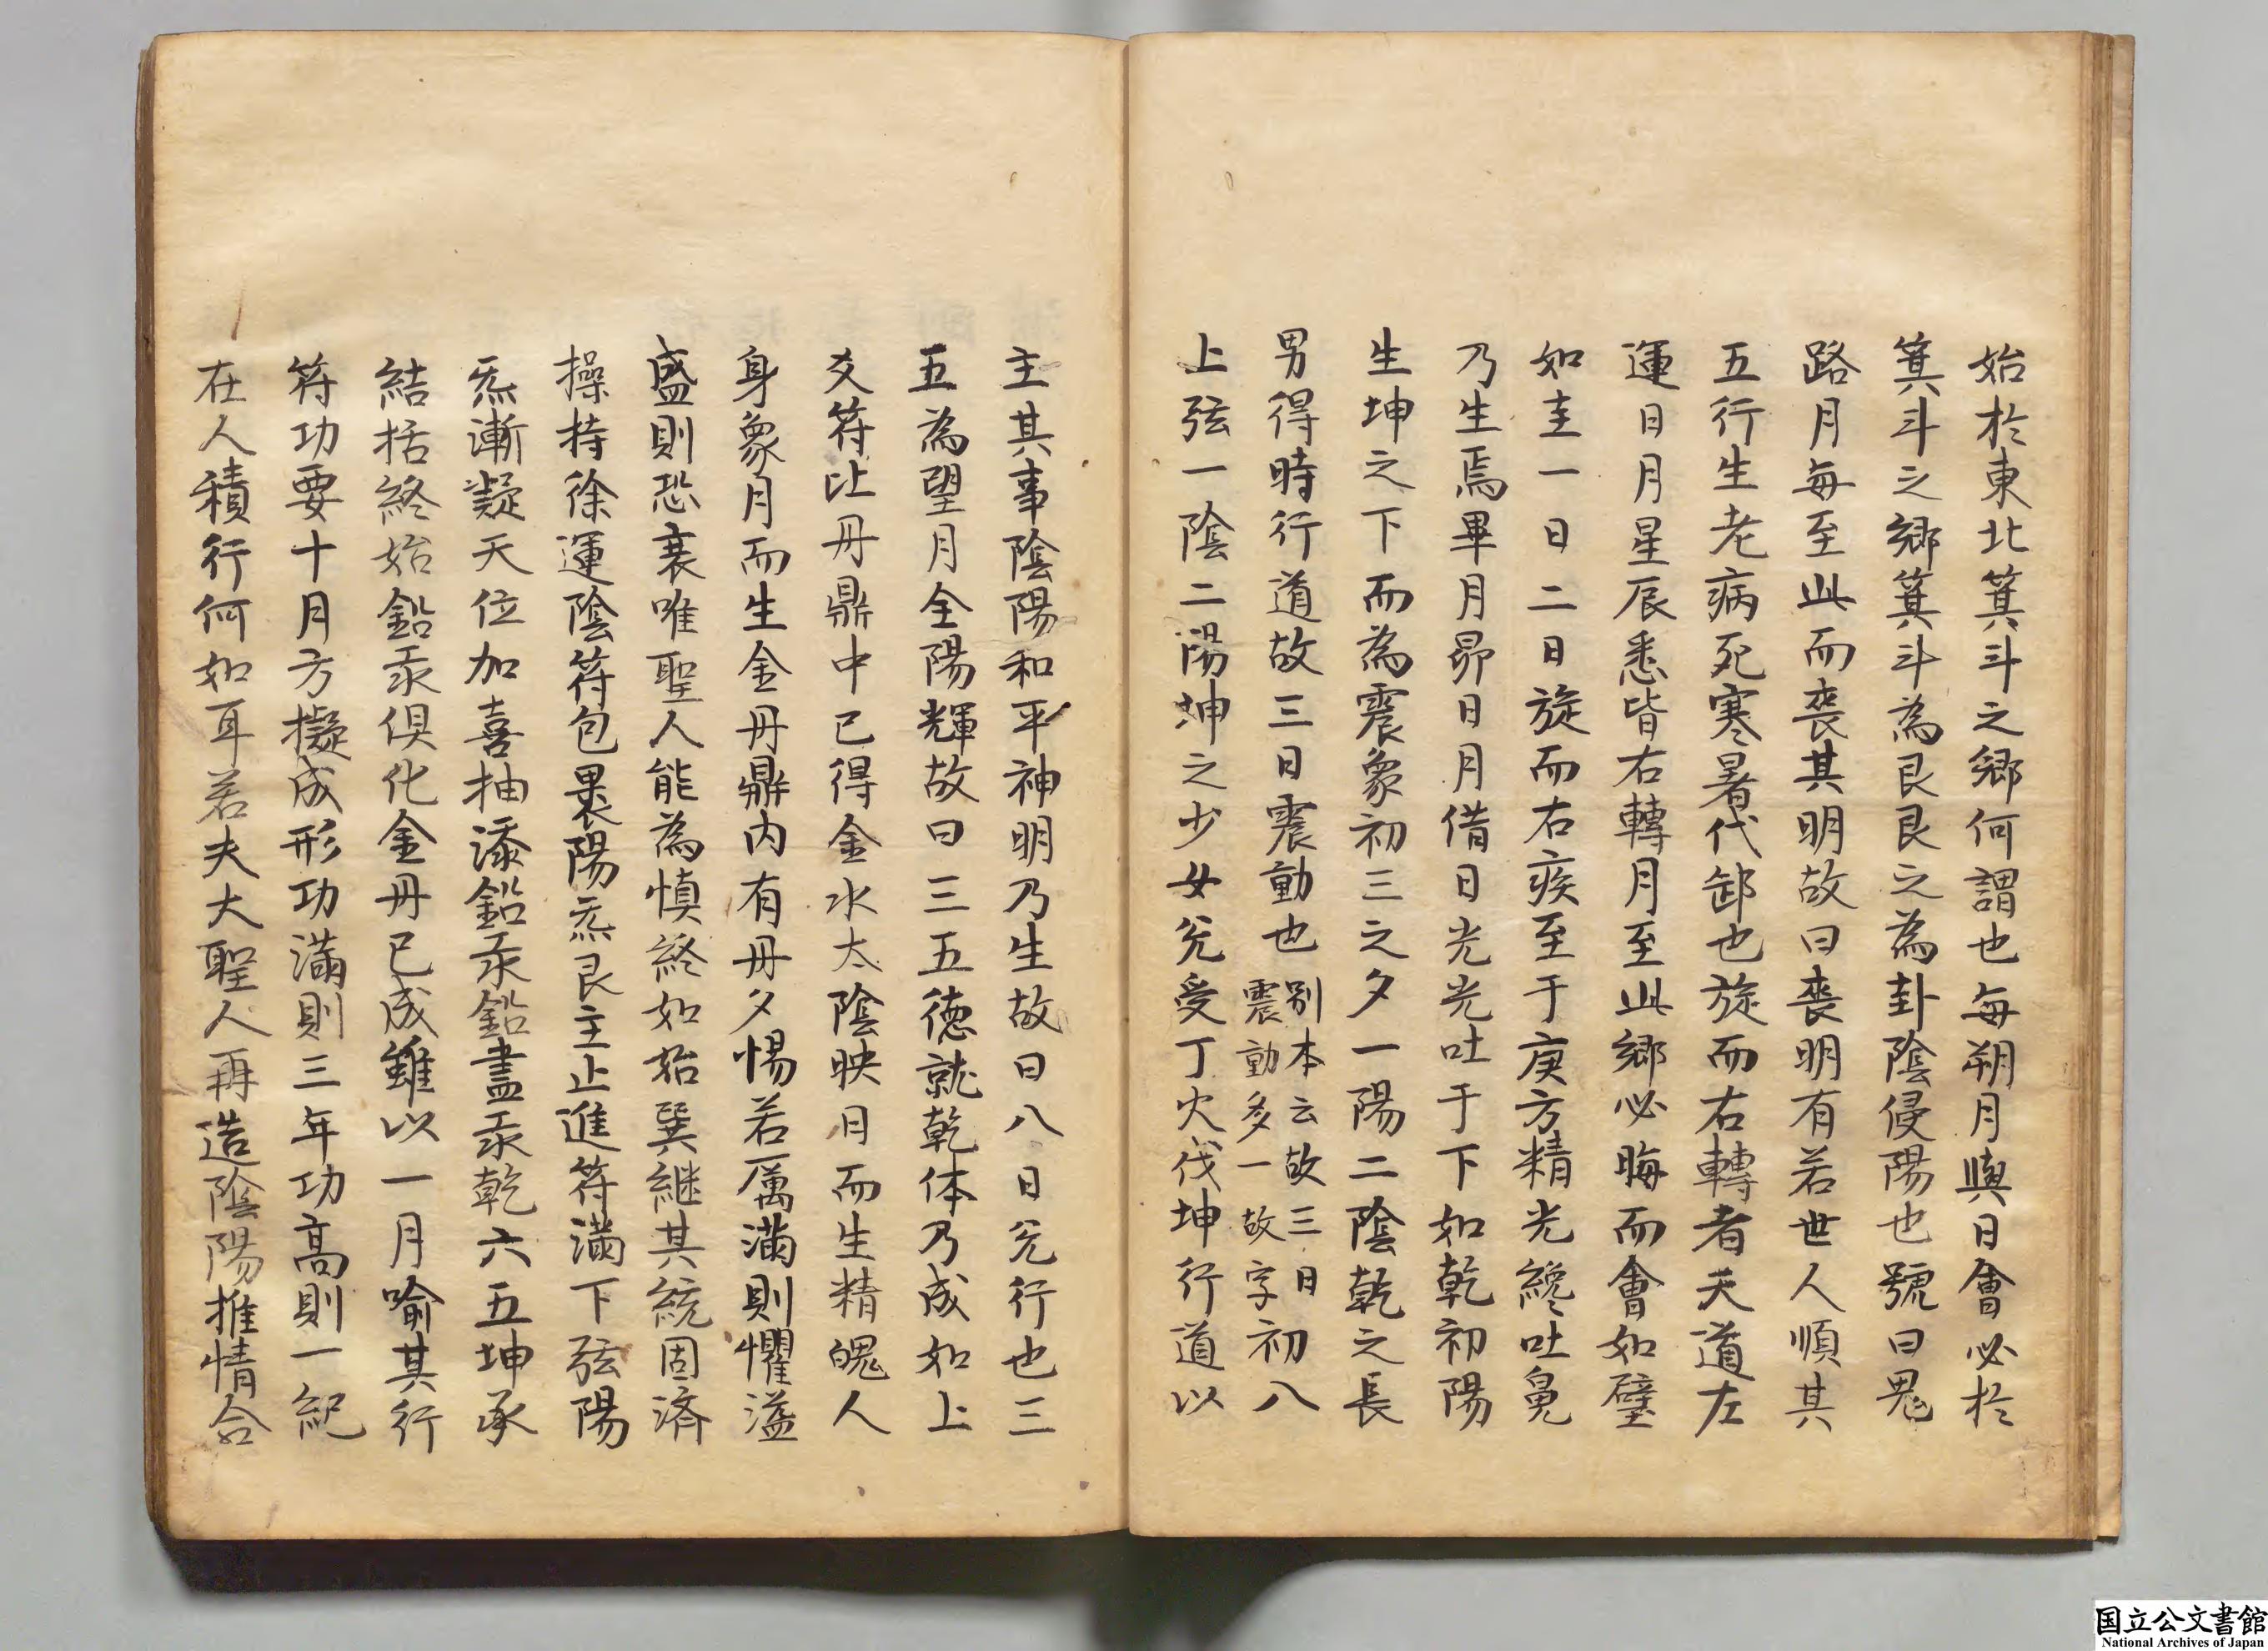 始於東北箕斗之鄉何謂也每朔月與日會必於
箕斗之鄉箕斗為艮艮之為卦陰侵陽也號曰鬼
路月每至此而喪其明故曰喪明有若世人順其
五行生老病死寒暑代卸也旋而右轉者天道左
運日月星辰悉皆右轉月至此鄉必晦而會如璧
如圭一日二日旋而右疾至于庚方精光纔吐兔
乃生焉畢月昴日月借日光光吐于下如乾初陽
生坤之下而為震象初三之夕一陽二陰乾之長
男得時行道故三日震動也
別本云故三日
震動多一故字
初八
上弦一陰二陽坤之少女兌受丁火伐坤行道以
主其事陰陽和平神明乃生故曰八日兌行也三
五為望月全陽輝故曰三五德就乾体乃成如上
爻符比丹鼎中已得金水太陰映日而生精魄人
身象月而生金丹鼎內有丹夕惕若厲滿則懼溢
盛則恐衰唯聖人能為慎終如始巽継其統固済
操持徐運陰符包裹陽炁艮主止進符滿下弦陽
炁漸凝天位加喜抽添鉛汞鉛盡汞乾六五坤承
結括終始鉛汞俱化金丹已成雖以一月喻其行
符功要十月方擬成形功滿則三年功高則一紀
在人積行何如耳若夫大聖人再造陰陽推情合
国立公文書館
National Archives of Japan